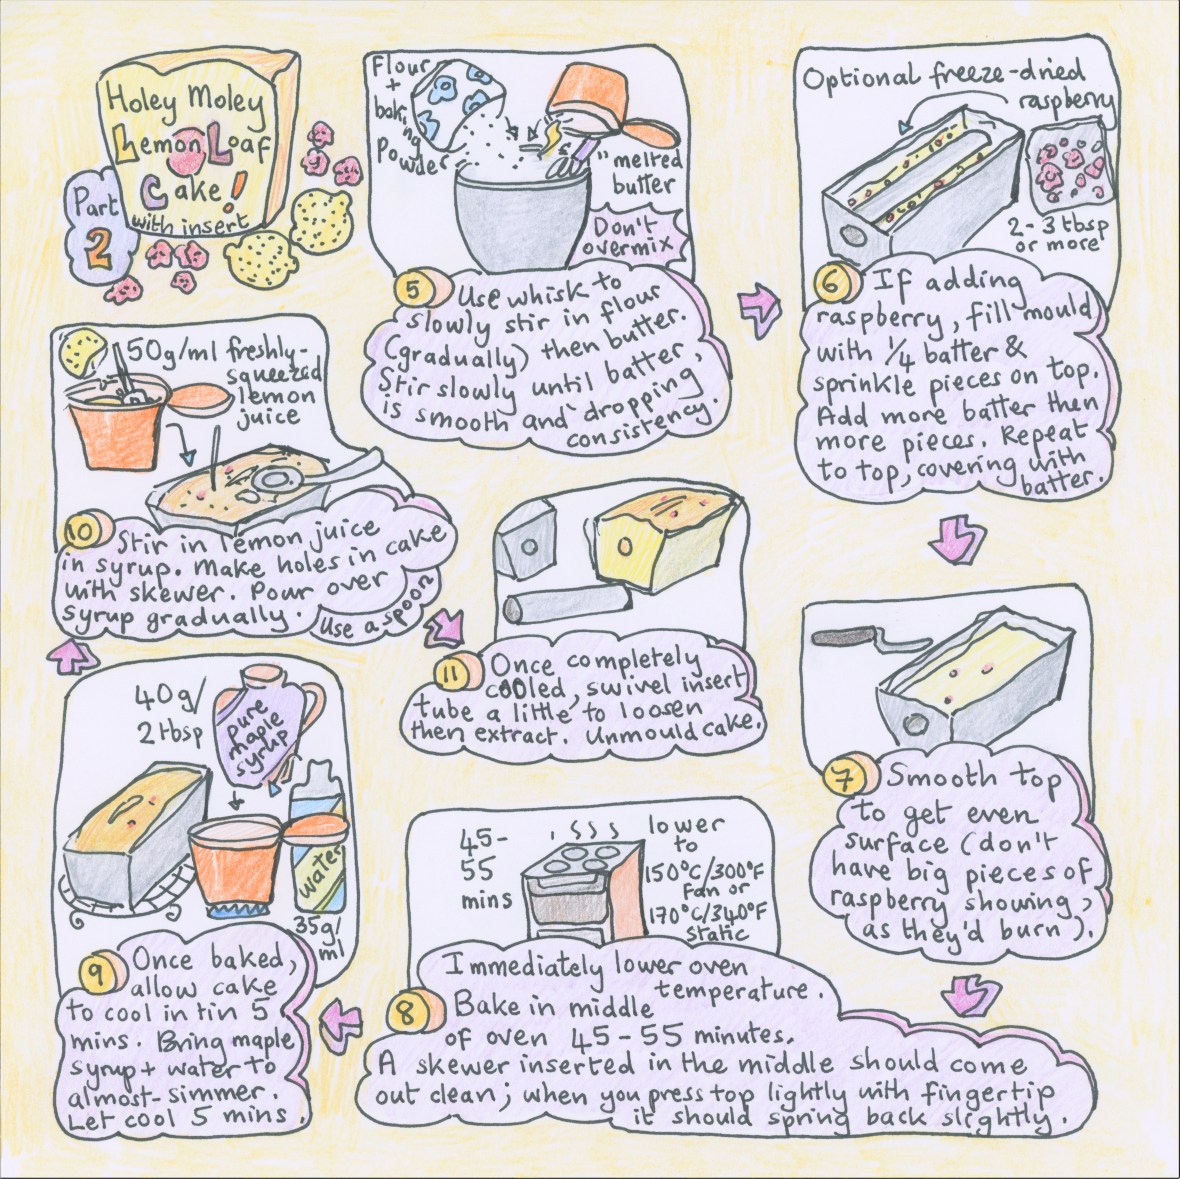 Holey Moley
Lemon Loaf
Cake!
with insert
Part
2
Flour
+
baking
Powder
"melted
butter
Don't
overmix
5 Use whisk to
slowly stir in flour
(gradually) then butter.
Stir slowly until batter,
is smooth and dropping
consistency.
Optional freeze-dried
raspberry
2-3 tbsp
or more
6 If adding
raspberry, fill mould
with ¼ batter &
sprinkle pieces on top.
Add more batter then
more pieces. Repeat
to top, covering with
batter.
7 Smooth top
to get even
surface (don't
have big pieces of
raspberry showing,
as they'd burn).
45-
55
mins
lower
to
150°C/300°F
Fan or
170°C/340°F
Static
Immediately lower oven
temperature.
8 Bake in middle
of oven 45-55 minutes.
A skewer inserted in the middle should come
out clean; when you press top lightly with fingertip
it should spring back slightly.
40g/
2 tbsp
pure
maple
syrup
water
35g/
ml
9 Once baked,
allow cake
to cool in tin 5
mins. Bring maple
syrup + water to
almost-simmer.
Let cool 5 mins.
50g/ml freshly-
squeezed
lemon
juice
10 Stir in lemon juice
in syrup. Make holes in cake
with skewer. Pour over
syrup gradually.
Use a spoon
11 Once completely
cooled, swivel insert
tube a little to loosen
then extract. Unmould cake.